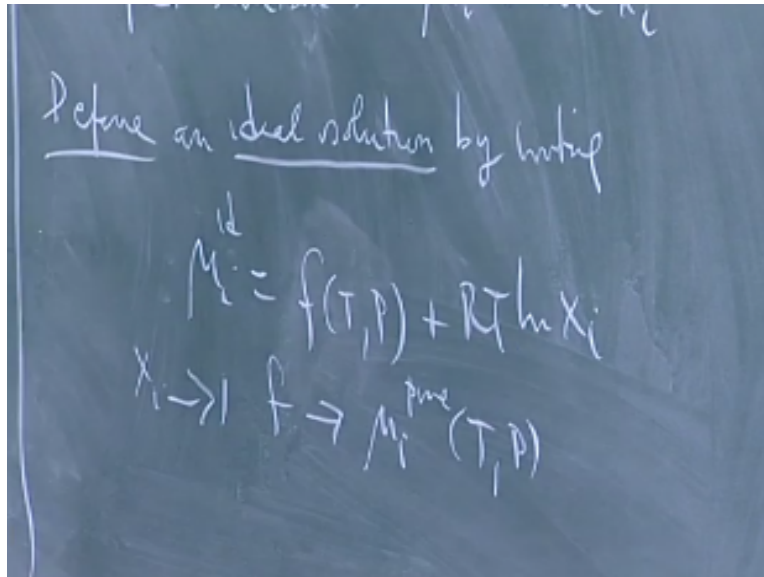 Define an ideal solution by writing
μᵢⁱᵈ = f(T,P) + RT ln Xᵢ
Xᵢ → 1 f → μᵢᵖᵘʳᵉ (T,P)